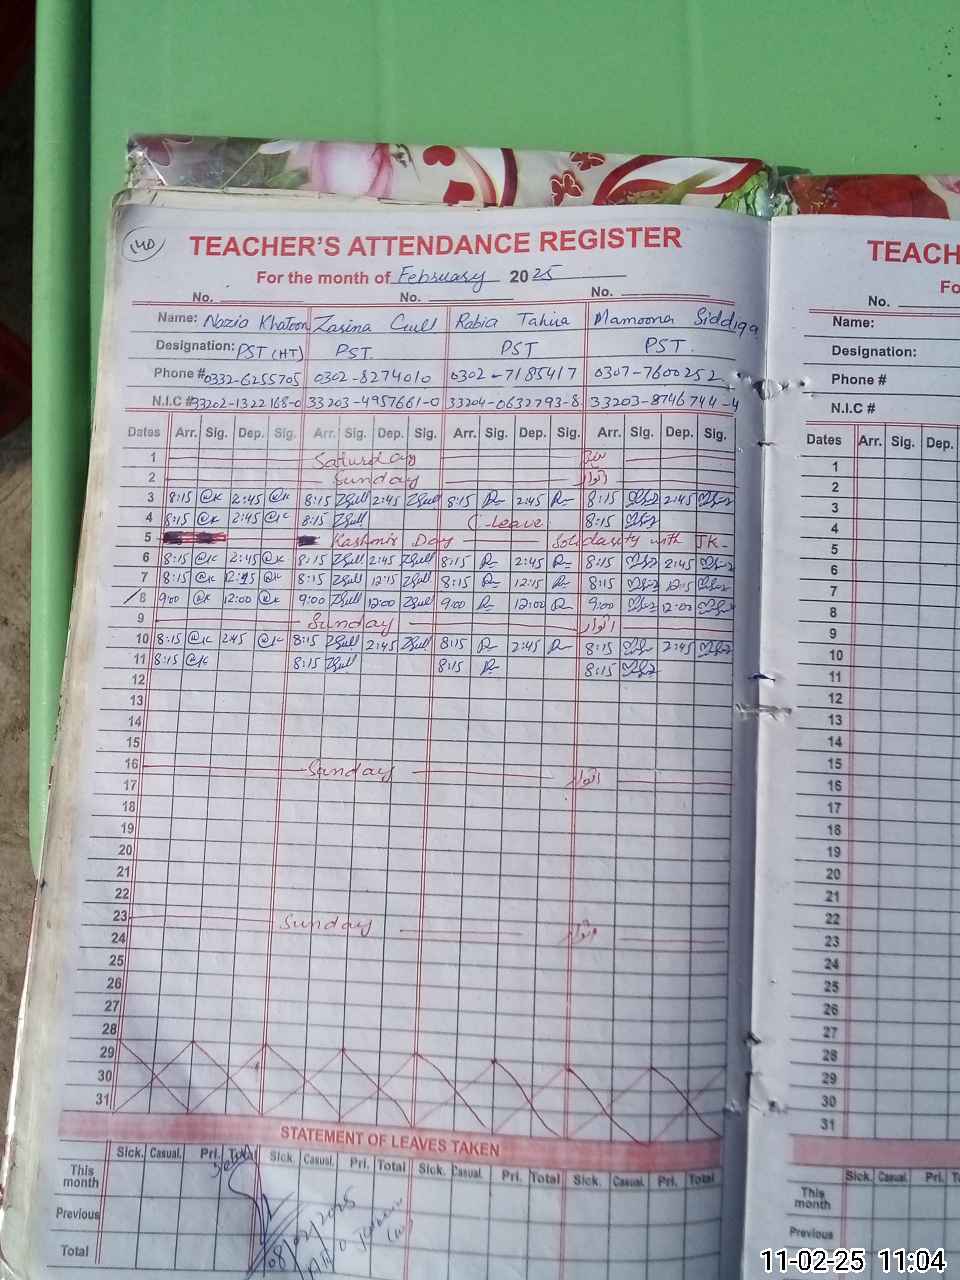 140
TEACHER'S ATTENDANCE REGISTER
For the month of February 2025
No. No. No.
Name: Nazia Khatoon Zarina Gull Rabia Tahira Mamoona Siddiqa
Designation: PST (HT) PST. PST PST.
Phone # 0332-6255705 0302-8274010 0302-7185417 0307-7600252
N.I.C # 33202-1322168-0 33203-4957661-0 33204-0632793-8 33203-8746744-4
Dates Arr. Sig. Dep. Sig. Arr. Sig. Dep. Sig. Arr. Sig. Dep. Sig. Arr. Sig. Dep. Sig.
1 Saturday
2 Sunday اتوار
3 8:15 2:45 8:15 ZGull 2:45 ZGull 8:15 2:45 8:15 2:45
4 8:15 2:45 8:15 ZGull C-leave 8:15
5 Kashmir Day Solidarity with JK
6 8:15 2:45 8:15 ZGull 2:45 ZGull 8:15 2:45 8:15 2:45
7 8:15 12:15 8:15 ZGull 12:15 ZGull 8:15 12:15 8:15 12:15
8 9:00 12:00 9:00 ZGull 12:00 ZGull 9:00 12:00 9:00 12:00
9 Sunday اتوار
10 8:15 2:45 8:15 ZGull 2:45 ZGull 8:15 2:45 8:15 2:45
11 8:15 8:15 ZGull 8:15 8:15
12
13
14
15
16 Sunday اتوار
17
18
19
20
21
22
23 Sunday اتوار
24
25
26
27
28
29
30
31
STATEMENT OF LEAVES TAKEN
Sick. Casual. Pri. Total Sick. Casual. Pri. Total Sick. Casual. Pri. Total Sick. Casual. Pri. Total
This month
Previous
Total
08/02/2025
TEACH
Fo
No.
Name:
Designation:
Phone #
N.I.C #
Dates Arr. Sig. Dep.
1
2
3
4
5
6
7
8
9
10
11
12
13
14
15
16
17
18
19
20
21
22
23
24
25
26
27
28
29
30
31
Sick. Casual. Pri. T
This month
Previous
11-02-25 11:04